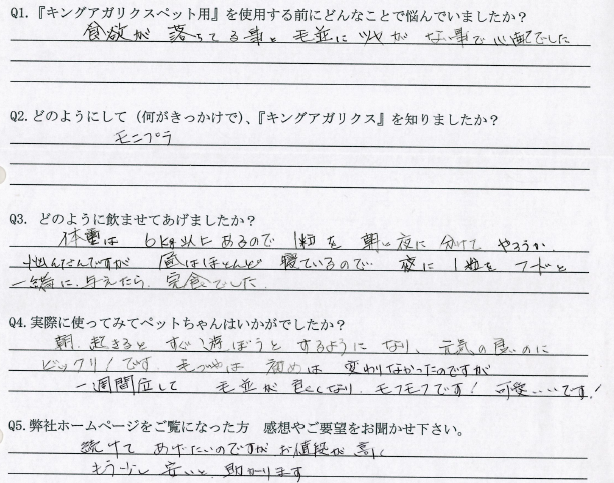 Q1.『キングアガリクスペット用』を使用する前にどんなことで悩んでいましたか？
食欲が 落ちてる事と 毛並に ツヤが ない事で 心配でした
Q2.どのようにして（何がきっかけで）、『キングアガリクス』を知りましたか？
モニプラ
Q3. どのように飲ませてあげましたか？
体重は 6kg以上あるので 1粒を 朝と夜に 分けて やろうか
悩んだんですが 昼はほとんど 寝ているので 夜に 1粒を フードと
一緒に 与えたら 完食でした
Q4.実際に使ってみてペットちゃんはいかがでしたか？
朝、起きると すぐ 遊ぼうと するようになり、元気の良いのに
ビックリ！です。毛づやは 初めは 変わりなかったのですが
一週間位して 毛並が 良くなり モフモフです！可愛いいです！
Q5.弊社ホームページをご覧になった方 感想やご要望をお聞かせ下さい。
続けて あげたいのですが お値段が 高く
もう少し 安いと 助かります